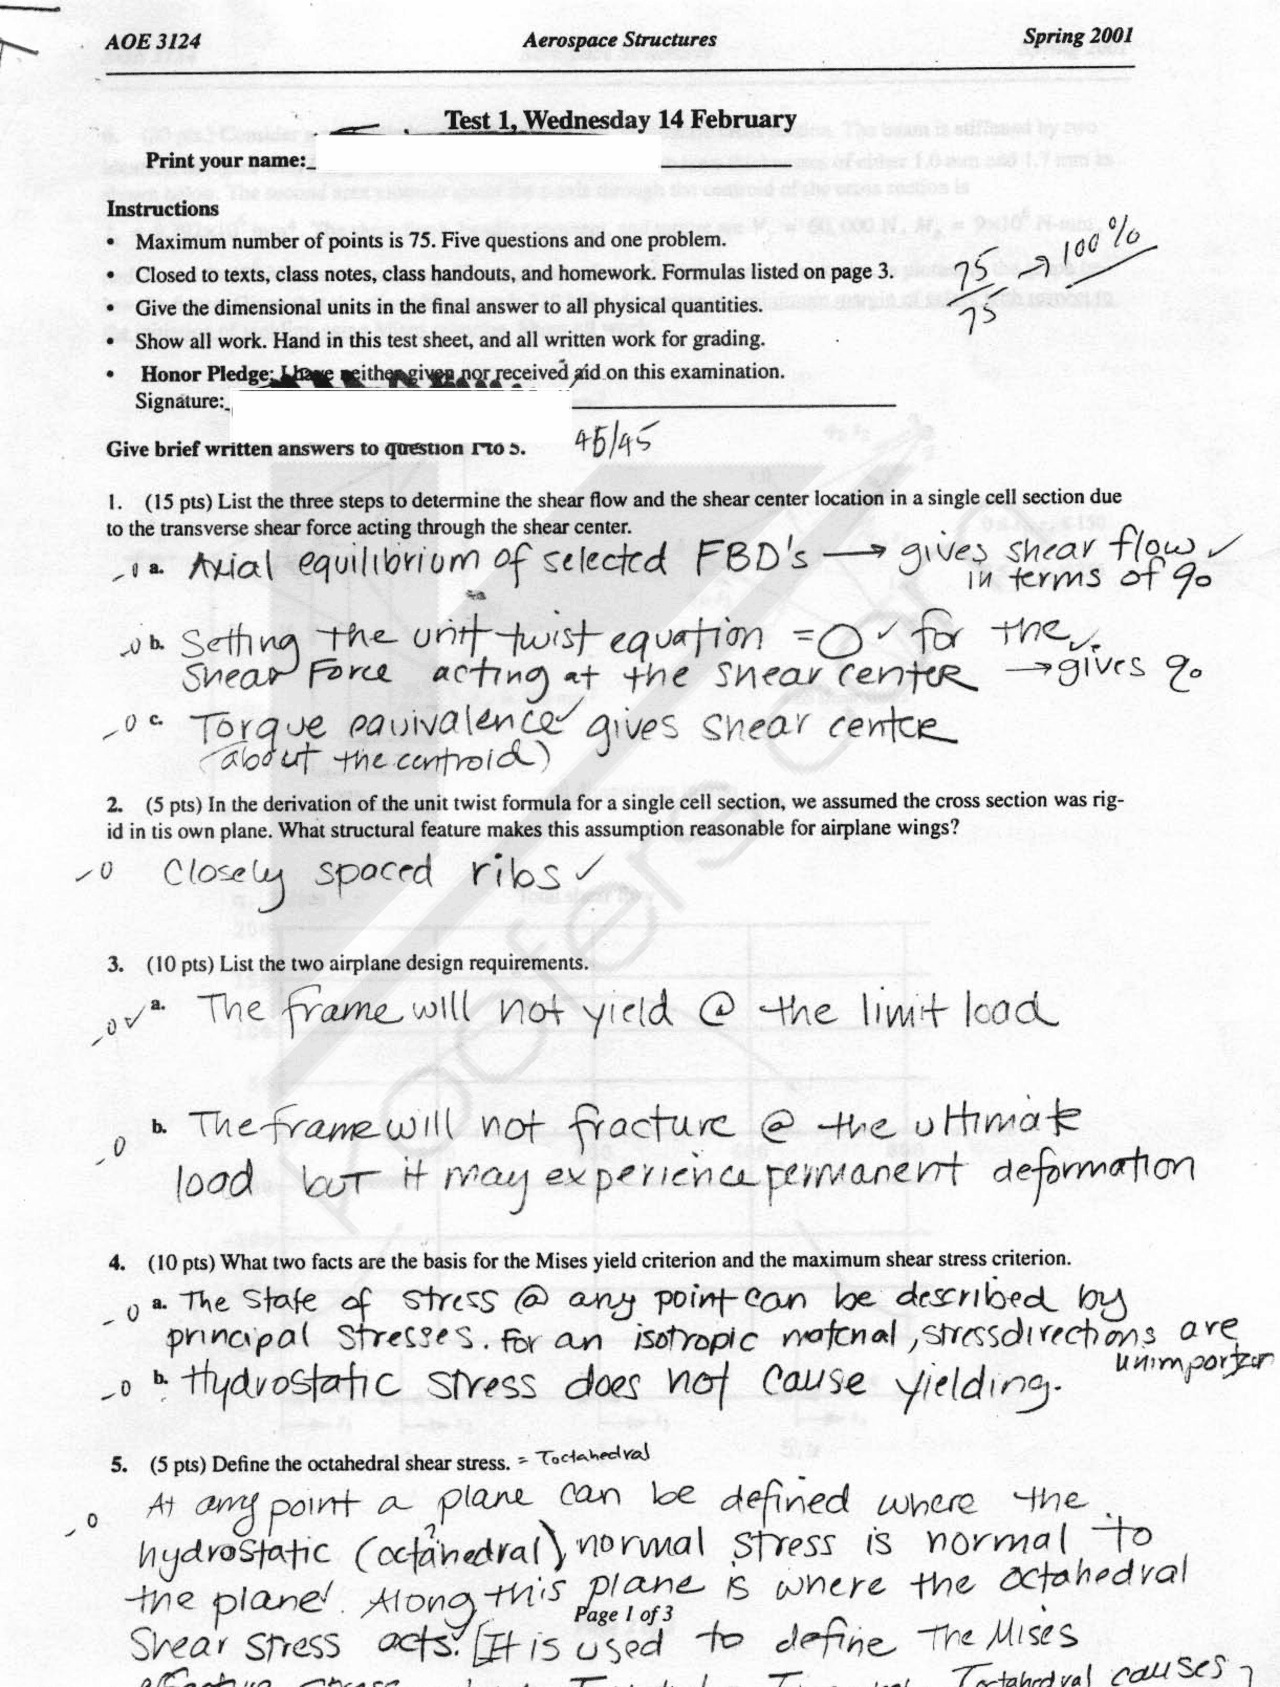 AOE 3124 Aerospace Structures Spring 2001
Test 1, Wednesday 14 February
Print your name:
Instructions
• Maximum number of points is 75. Five questions and one problem.
• Closed to texts, class notes, class handouts, and homework. Formulas listed on page 3.
• Give the dimensional units in the final answer to all physical quantities.
• Show all work. Hand in this test sheet, and all written work for grading.
75/75 → 100%
• Honor Pledge: I have neither given nor received aid on this examination.
Signature:
Give brief written answers to question 1 to 5. 45/45
1. (15 pts) List the three steps to determine the shear flow and the shear center location in a single cell section due
to the transverse shear force acting through the shear center.
-0 a. Axial equilibrium of selected FBD's → gives shear flow ✓
in terms of q0
-0 b. Setting the unit twist equation = 0 ✓ for the ✓
Shear Force acting at the shear center → gives q0
-0 c. Torque equivalence ✓ gives shear center
(about the centroid)
2. (5 pts) In the derivation of the unit twist formula for a single cell section, we assumed the cross section was rig-
id in tis own plane. What structural feature makes this assumption reasonable for airplane wings?
-0 Closely spaced ribs ✓
3. (10 pts) List the two airplane design requirements.
-0 ✓ a. The frame will not yield @ the limit load
-0 b. The frame will not fracture @ the ultimate
load but it may experience permanent deformation
4. (10 pts) What two facts are the basis for the Mises yield criterion and the maximum shear stress criterion.
-0 a. The State of stress @ any point can be described by
principal stresses. For an isotropic material, stress directions are
-0 b. Hydrostatic stress does not cause yielding.
5. (5 pts) Define the octahedral shear stress. = τoctahedral
-0 At any point a plane can be defined where the
hydrostatic (octahedral) normal stress is normal to
the plane. Along this plane is where the octahedral
Page 1 of 3
Shear stress acts. [It is used to define The Mises
τoctahedral causes
Koofers.com